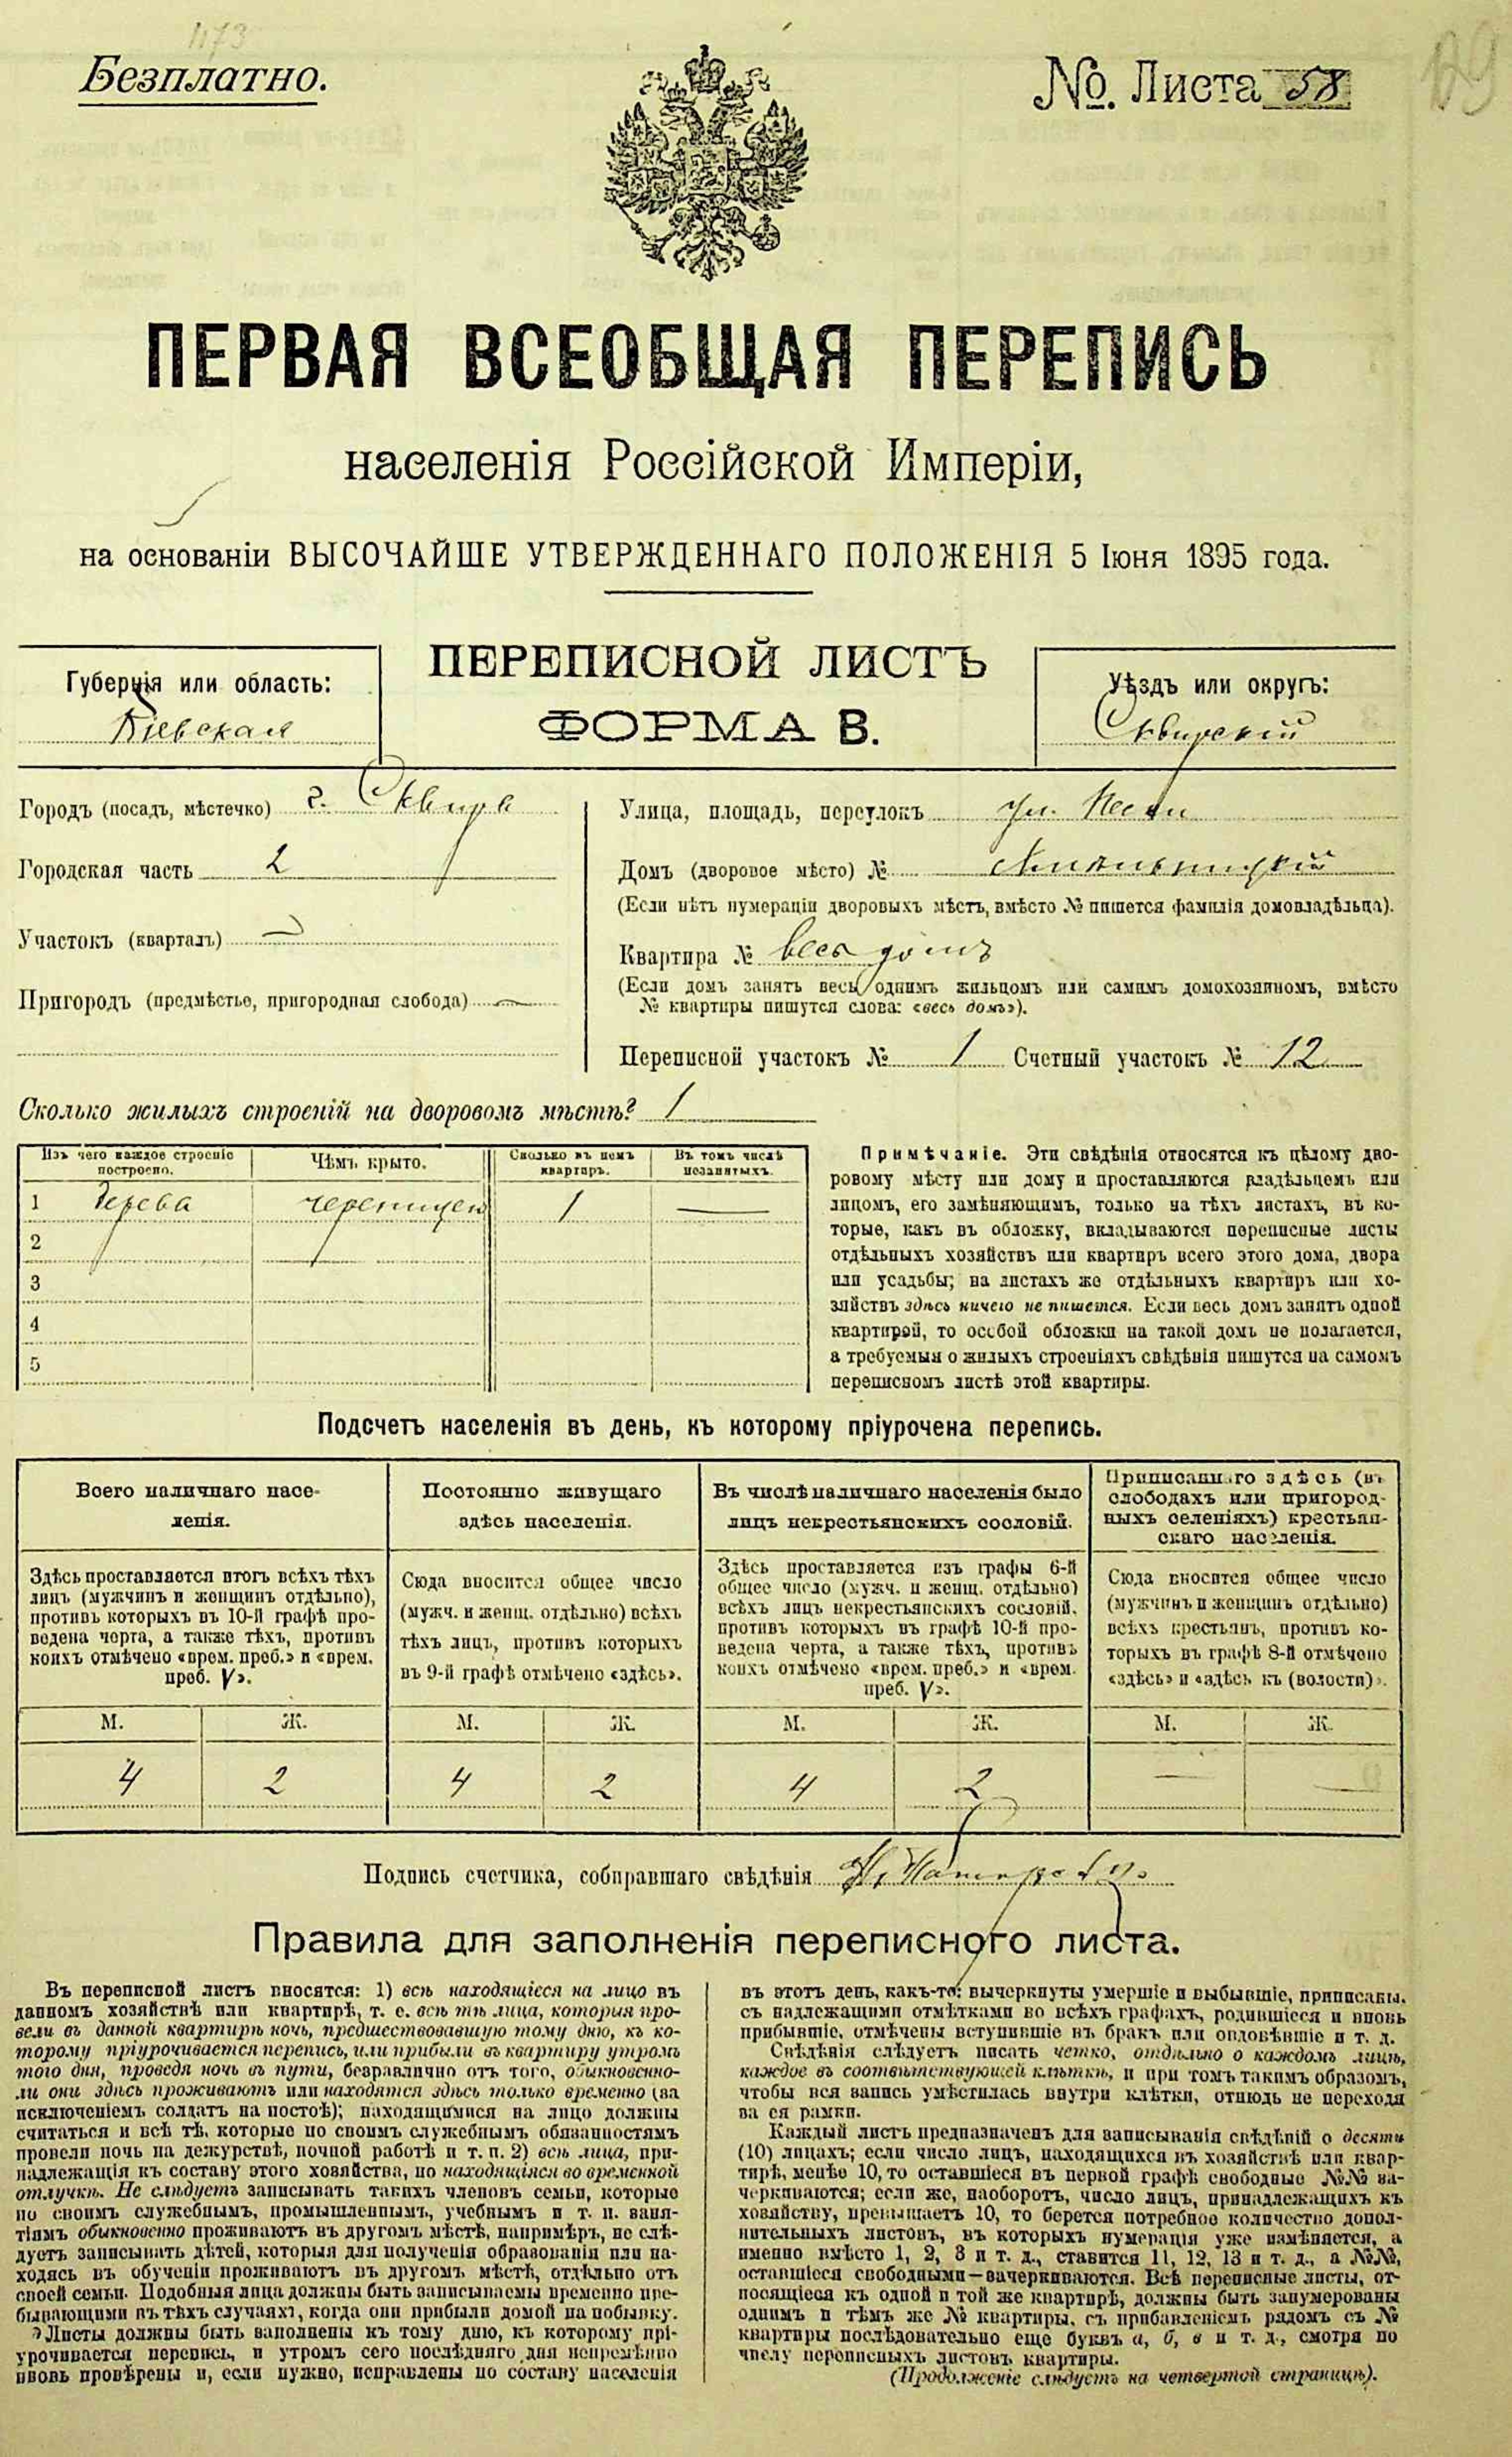 1173
Безплатно.
№. Листа 58
ПЕРВАЯ ВСЕОБЩАЯ ПЕРЕПИСЬ
населенія Россійской Имперіи,
на основаніи ВЫСОЧАЙШЕ УТВЕРЖДЕННАГО ПОЛОЖЕНІЯ 5 Іюня 1895 года.
ПЕРЕПИСНОЙ ЛИСТЪ
ФОРМА В.
Губернія или область:
Кіевская
Уѣздъ или округъ:
Сквирскій
Городъ (посадъ, мѣстечко) г. Сквира
Городская часть 2
Участокъ (кварталъ) —
Пригородъ (предмѣстье, пригородная слобода) —
Улица, площадь, переулокъ ул. Пески
Домъ (дворовое мѣсто) №
(Если нѣтъ нумераціи дворовыхъ мѣстъ, вмѣсто № пишется фамилія домовладѣльца).
Квартира № весь домъ
(Если домъ занятъ весь однимъ жильцомъ или самимъ домохозяиномъ, вмѣсто
№ квартиры пишутся слова: «весь домъ»).
Переписной участокъ № 1 Счетный участокъ № 12
Сколько жилыхъ строеній на дворовомъ мѣстѣ? 1
Изъ чего каждое строеніе
построено.
Чѣмъ крыто.
Сколько въ немъ
квартиръ.
Въ томъ числѣ
незанятыхъ.
1 дерева черепицею 1 —
2
3
4
5
Примѣчаніе. Эти свѣдѣнія относятся къ цѣлому дво-
ровому мѣсту или дому и проставляются владѣльцемъ или
лицомъ, его замѣняющимъ, только на тѣхъ листахъ, въ ко-
торые, какъ въ обложку, вкладываются переписные листы
отдѣльныхъ хозяйствъ или квартиръ всего этого дома, двора
или усадьбы; на листахъ же отдѣльныхъ квартиръ или хо-
зяйствъ здѣсь ничего не пишется. Если весь домъ занятъ одной
квартирой, то особой обложки на такой домъ не полагается,
а требуемыя о жилыхъ строеніяхъ свѣдѣнія пишутся на самомъ
переписномъ листѣ этой квартиры.
Подсчетъ населенія въ день, къ которому пріурочена перепись.
Всего наличнаго насе-
ленія.
Здѣсь проставляется итогъ всѣхъ тѣхъ
лицъ (мужчинъ и женщинъ отдѣльно),
противъ которыхъ въ 10-й графѣ про-
ведена черта, а также тѣхъ, противъ
коихъ отмѣчено «врем. преб.» и «врем.
преб. V».
М. Ж.
4 2
Постоянно живущаго
здѣсь населенія.
Сюда вносится общее число
(мужч. и женщ. отдѣльно) всѣхъ
тѣхъ лицъ, противъ которыхъ
въ 9-й графѣ отмѣчено «здѣсь».
М. Ж.
4 2
Въ числѣ наличнаго населенія было
лицъ некрестьянскихъ сословій.
Здѣсь проставляется изъ графы 6-й
общее число (мужч. и женщ. отдѣльно)
всѣхъ лицъ некрестьянскихъ сословій,
противъ которыхъ въ графѣ 10-й про-
ведена черта, а также тѣхъ, противъ
коихъ отмѣчено «врем. преб.» и «врем.
преб. V».
М. Ж.
4 2
Приписаннаго здѣсь (въ
слободахъ или пригород-
ныхъ селеніяхъ) крестьян-
скаго населенія.
Сюда вносится общее число
(мужчинъ и женщинъ отдѣльно)
всѣхъ крестьянъ, противъ ко-
торыхъ въ графѣ 8-й отмѣчено
«здѣсь» и «здѣсь къ (волости)».
М. Ж.
— —
Подпись счетчика, собиравшаго свѣдѣнія
Правила для заполненія переписного листа.
Въ переписной листъ вносятся: 1) всѣ находящіеся на лицо въ
данномъ хозяйствѣ или квартирѣ, т. е. всѣ тѣ лица, которыя про-
вели въ данной квартирѣ ночь, предшествовавшую тому дню, къ ко-
торому пріурочивается перепись, или прибыли въ квартиру утромъ
того дня, проведя ночь въ пути, безразлично отъ того, обыкновенно-
ли они здѣсь проживаютъ или находятся здѣсь только временно (за
исключеніемъ солдатъ на постоѣ); находящимися на лицо должны
считаться и всѣ тѣ, которые по своимъ служебнымъ обязанностямъ
провели ночь на дежурствѣ, ночной работѣ и т. п. 2) всѣ лица, при-
надлежащія къ составу этого хозяйства, но находящіяся во временной
отлучкѣ. Не слѣдуетъ записывать такихъ членовъ семьи, которые
по своимъ служебнымъ, промышленнымъ, учебнымъ и т. п. заня-
тіямъ обыкновенно проживаютъ въ другомъ мѣстѣ, напримѣръ, не слѣ-
дуетъ записывать дѣтей, которыя для полученія образованія или на-
ходясь въ обученіи проживаютъ въ другомъ мѣстѣ, отдѣльно отъ
своей семьи. Подобныя лица должны быть записываемы временно пре-
бывающими въ тѣхъ случаяхъ, когда они прибыли домой на побывку.
Листы должны быть заполнены къ тому дню, къ которому прі-
урочивается перепись, и утромъ сего послѣдняго дня непремѣнно
вновь провѣрены и, если нужно, исправлены по составу населенія
въ этотъ день, какъ-то: вычеркнуты умершіе и выбывшіе, приписаны,
съ надлежащими отмѣтками во всѣхъ графахъ, родившіеся и вновь
прибывшіе, отмѣчены вступившіе въ бракъ или овдовѣвшіе и т. д.
Свѣдѣнія слѣдуетъ писать четко, отдѣльно о каждомъ лицѣ,
каждое въ соотвѣтствующей клѣткѣ, и при томъ такимъ образомъ,
чтобы вся запись умѣстилась внутри клѣтки, отнюдь не переходя
за ея рамки.
Каждый листъ предназначенъ для записыванія свѣдѣній о десяти
(10) лицахъ; если число лицъ, находящихся въ хозяйствѣ или квар-
тирѣ, менѣе 10, то оставшіеся въ первой графѣ свободные №№ за-
черкиваются; если же, наоборотъ, число лицъ, принадлежащихъ къ
хозяйству, превышаетъ 10, то берется потребное количество допол-
нительныхъ листовъ, въ которыхъ нумерація уже измѣняется, а
именно вмѣсто 1, 2, 3 и т. д., ставится 11, 12, 13 и т. д., а №№,
оставшіеся свободными—зачеркиваются. Всѣ переписные листы, от-
носящіеся къ одной и той же квартирѣ, должны быть занумерованы
однимъ и тѣмъ же № квартиры, съ прибавленіемъ рядомъ съ №
квартиры послѣдовательно еще буквъ а, б, в и т. д., смотря по
числу переписныхъ листовъ квартиры.
(Продолженіе слѣдуетъ на четвертой страницѣ).